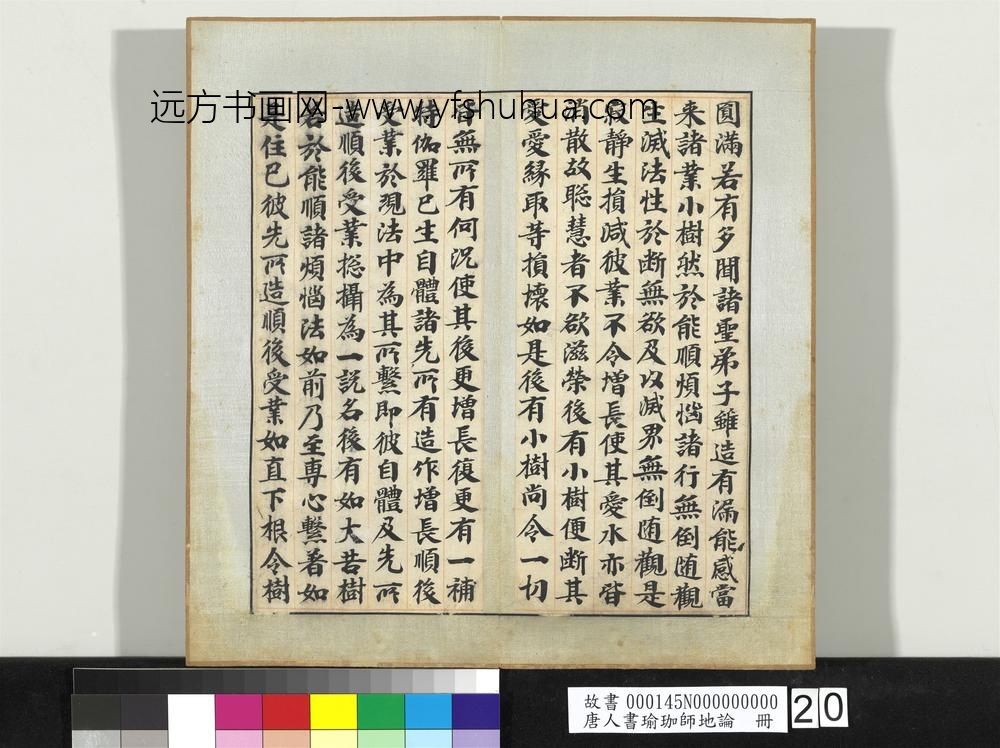 远方书画网-www.yfshuhua.com
圓滿若有多聞諸聖弟子雖造有漏能感當
来諸業小樹然於能順煩惱諸行無倒随觀
生滅法性於断無欲及以滅界無倒随觀是
静生損減彼業不令增長使其愛水亦皆
散故聡慧者不欲滋榮後有小樹便断其
愛縁取等損壞如是後有小樹尚令一切
皆無所有何況使其後更增長復更有一補
特伽羅已生自體諸先所有造作增長順後
受業於現法中為其所繫即彼自體及先所
造順後受業揔攝為一説名後有如大苦樹
若於能順諸煩惱法如前乃至専心繫著如
是住已彼先所造順後受業如直下根令樹
故書 000145N000000000
唐人書瑜珈師地論 冊
20